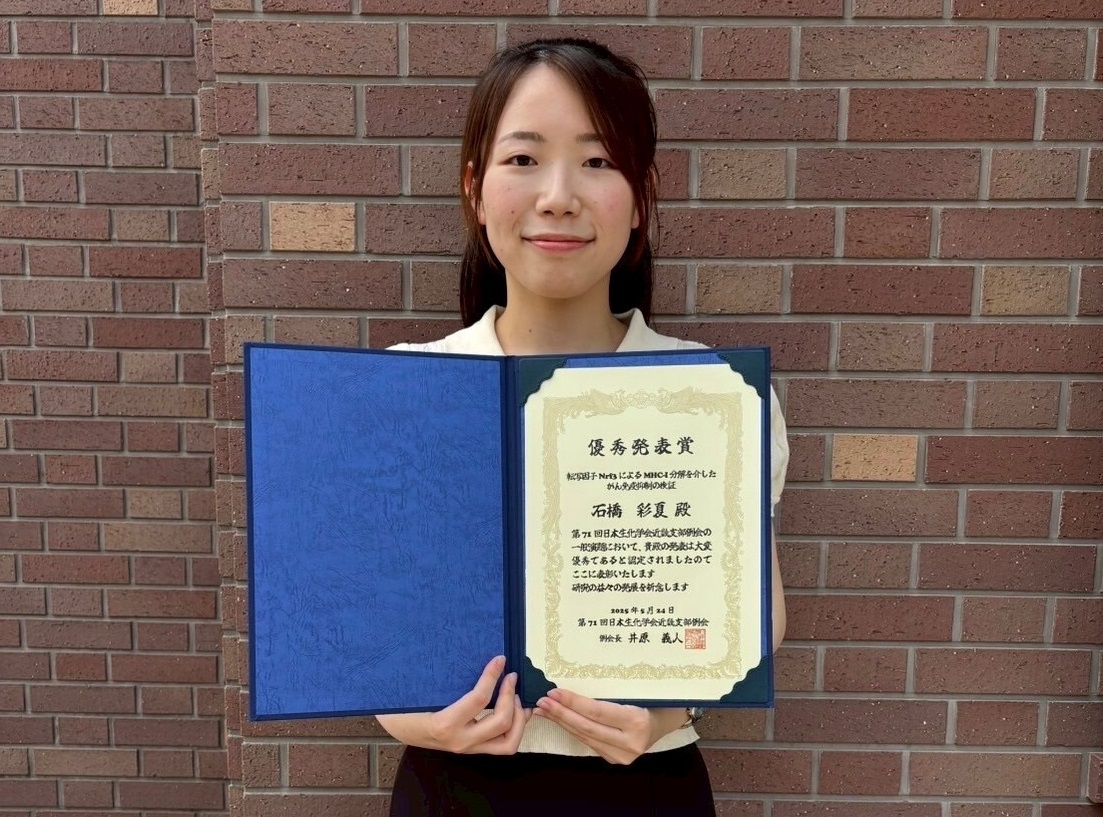 優秀発表賞
転写因子 Nrf3 による MHC-I 分解を介した
がん免疫抑制の検証
石橋 彩夏 殿
第 71 回日本生化学会近畿支部例会の
一般演題において、貴殿の発表は大変
優秀であると認定されましたので
ここに表彰いたします
研究の益々の発展を祈念します
2025 年 5 月 24 日
第 71 回日本生化学会近畿支部例会
例会長 井原 義人